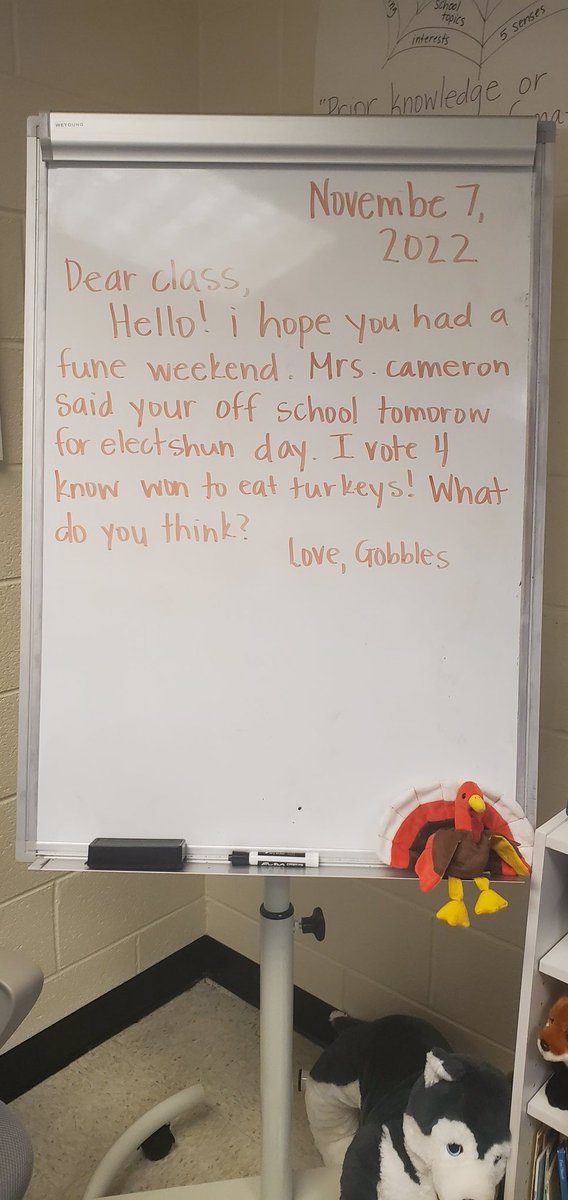 school
topics
interests
5 senses
"Prior knowledge or
WEYOUNG
Novembe 7,
2022
Dear class,
Hello! i hope you had a
fune weekend. Mrs. cameron
said your off school tomorow
for electshun day. I vote 4
know won to eat turkeys! What
do you think?
Love, Gobbles